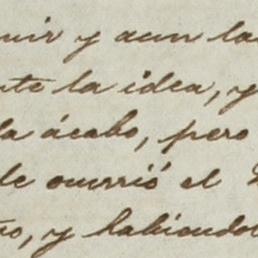 uir y aun la
te la idea, y
la ácabo, pero
le ocurrió el
o, y habiendo